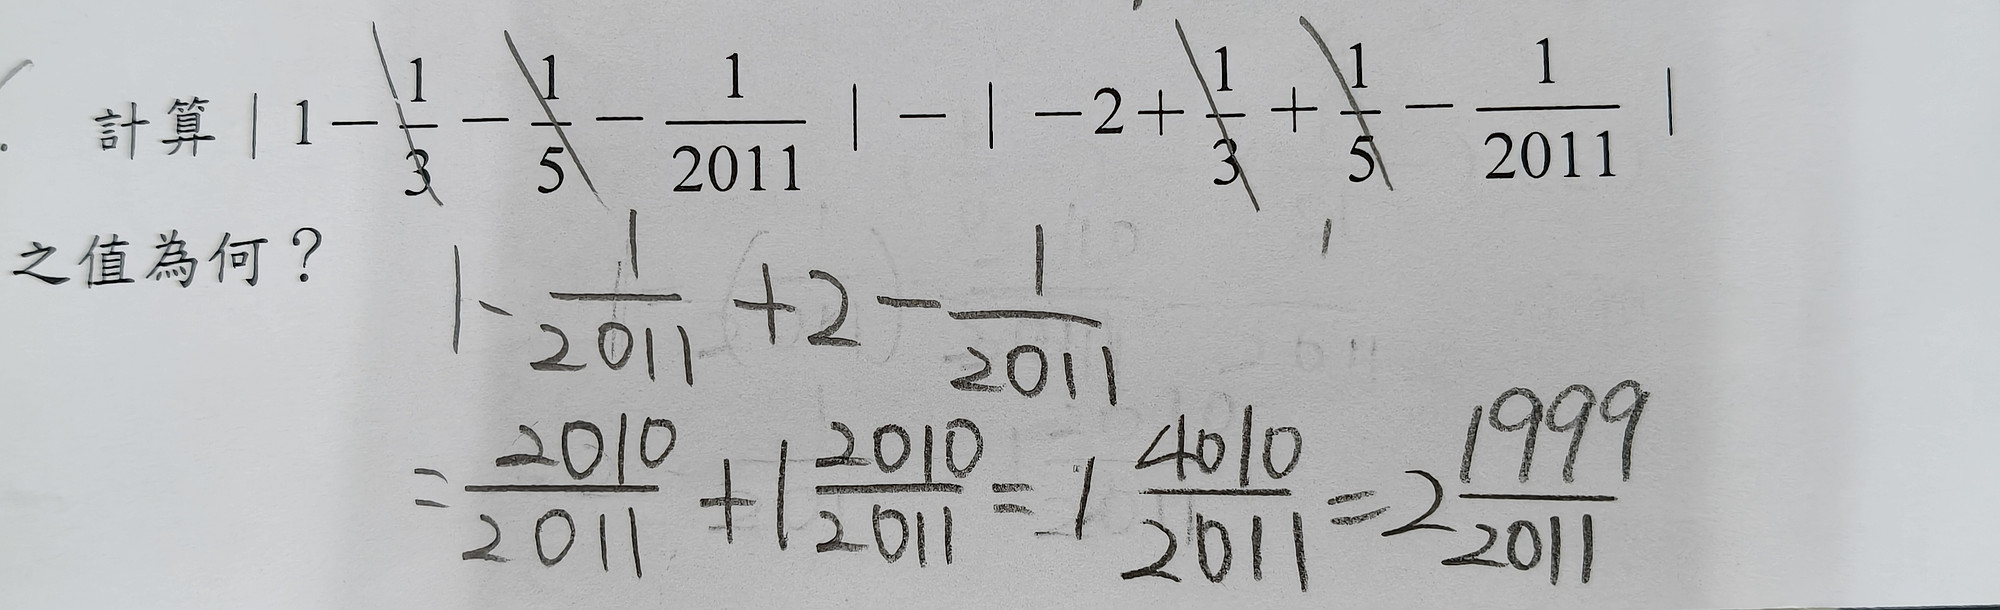 計算|1-1/3-1/5-1/2011|-|-2+1/3+1/5-1/2011|
之值為何?
1-1/2011+2-1/2011
=2010/2011+1 2010/2011=1 4010/2011=2 1999/2011